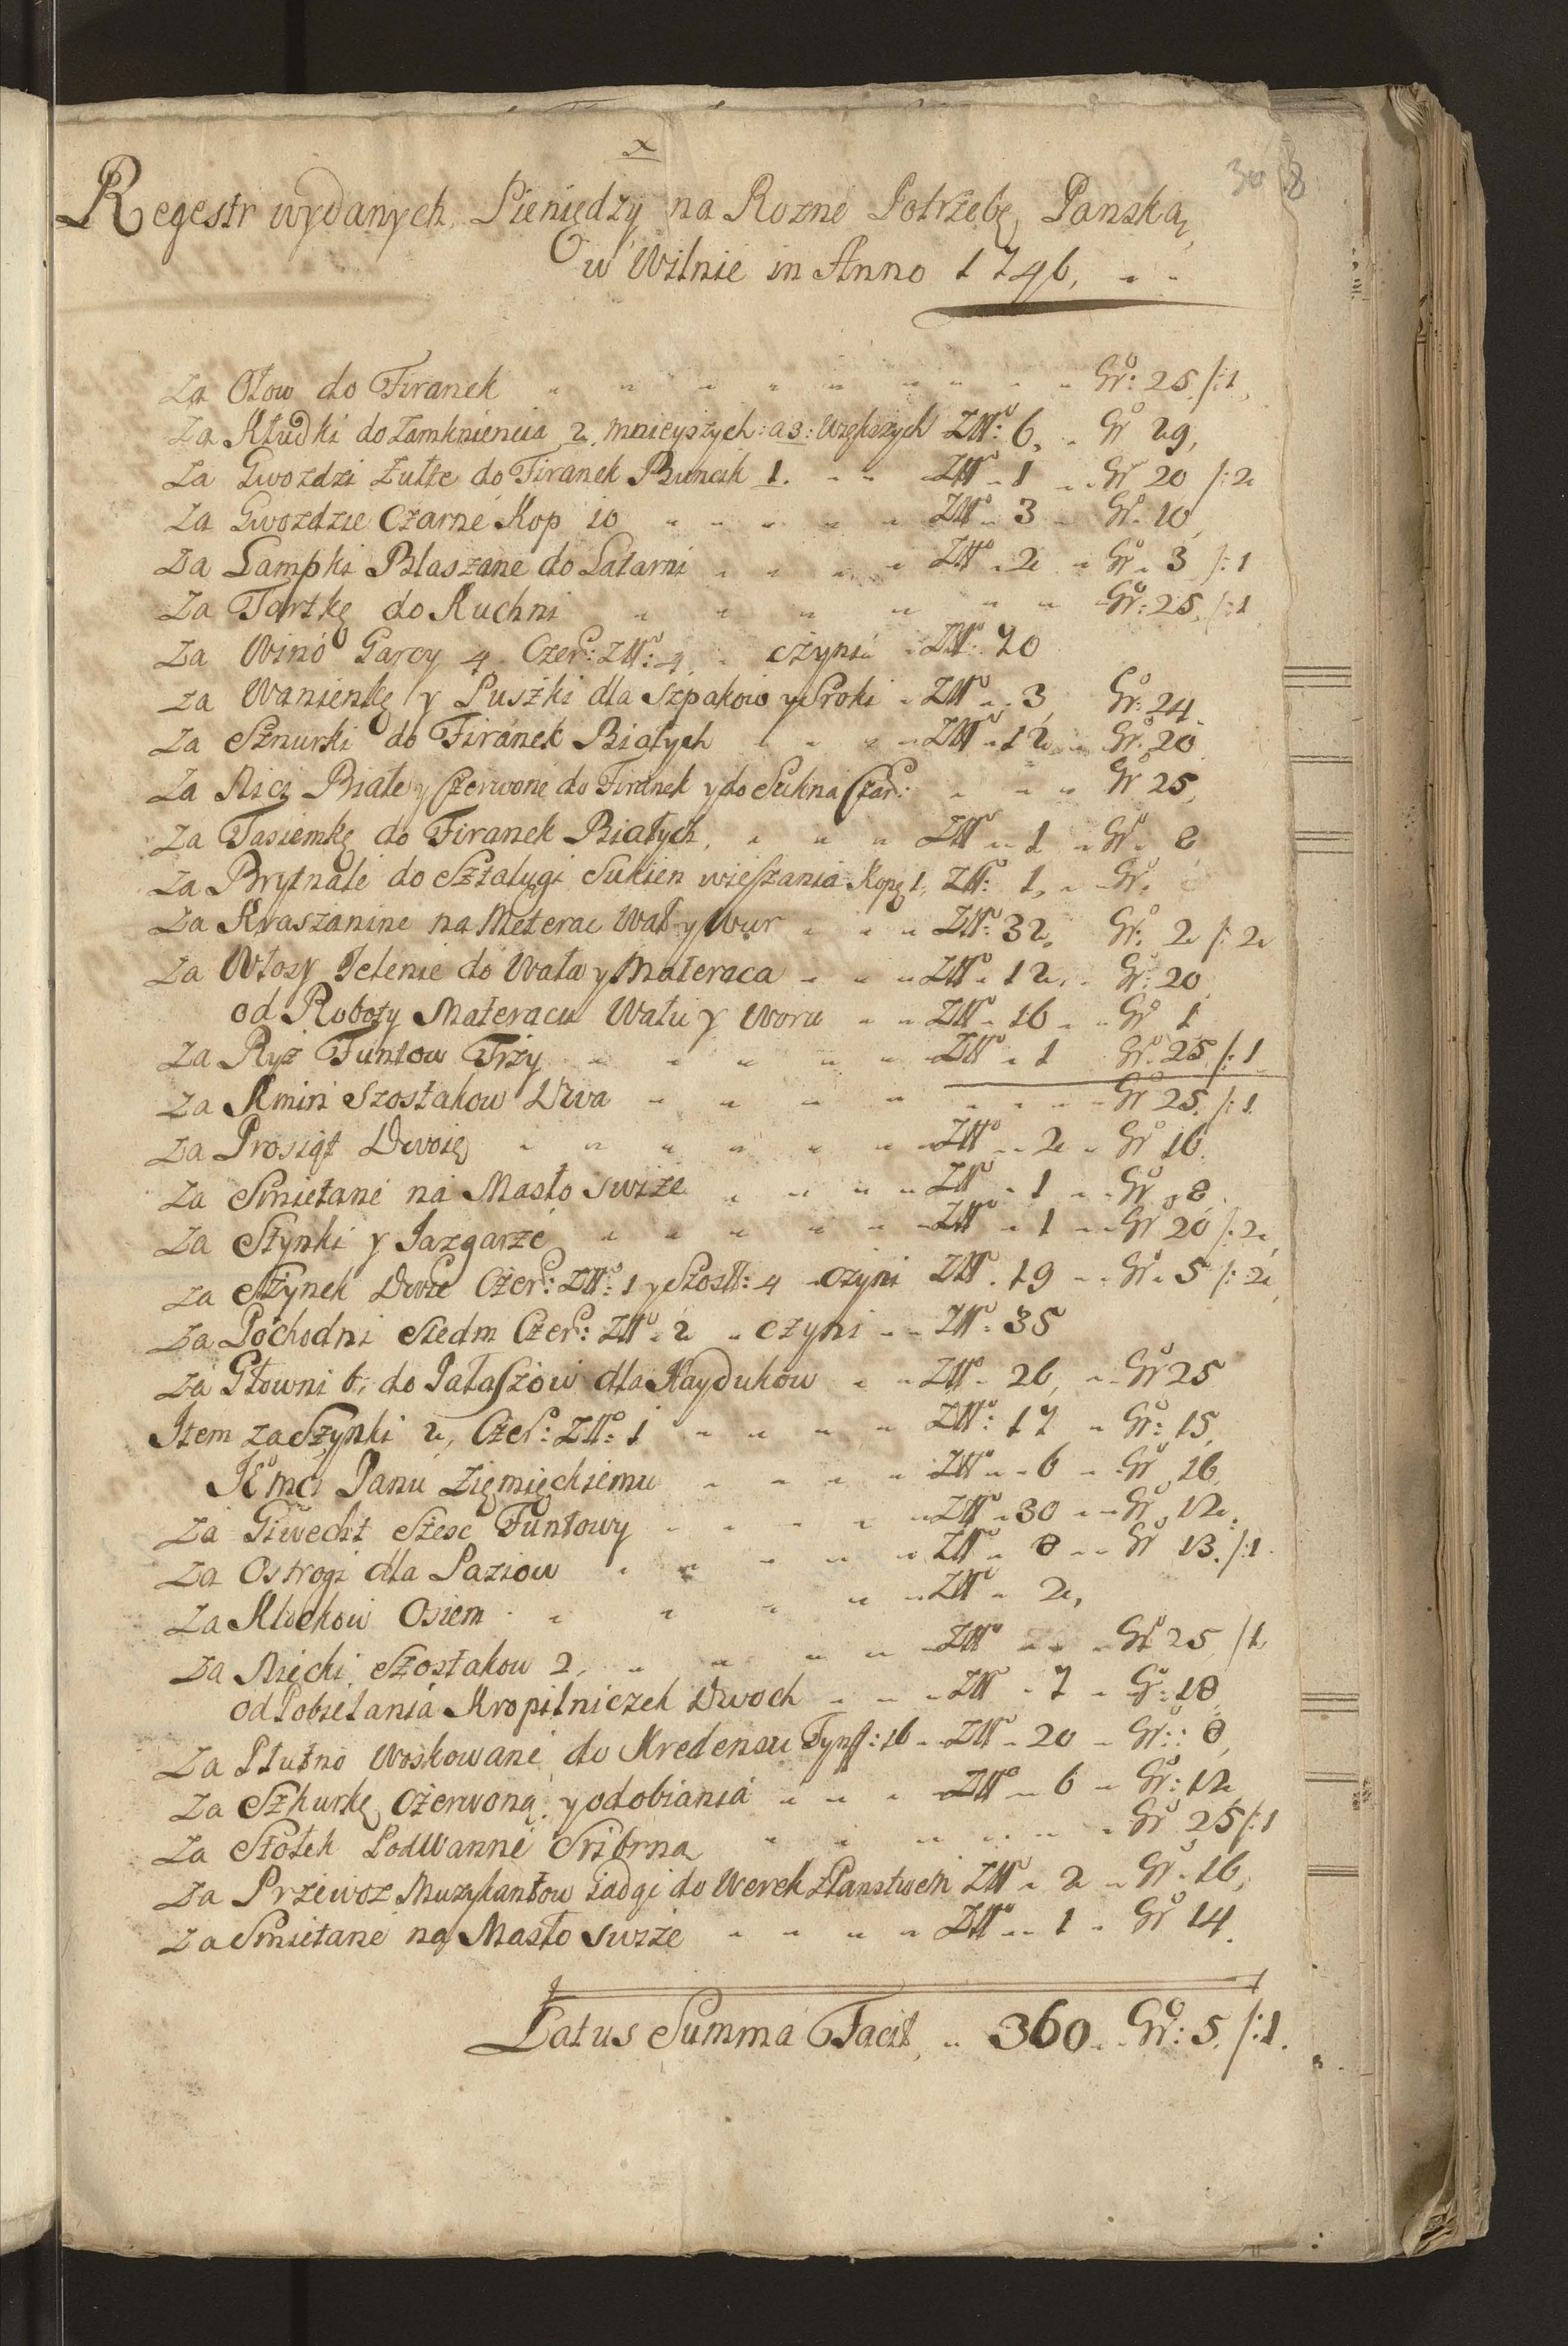 x
30 8
Regestr wydanych Pieniędzy na Rozne Potrzebę Panską
w Wilnie in Anno 1746,
Za Ołow do Firanek Gr: 25 /:1,
Za Kłudki do Zamknieniia 2, mnieyszych: a 3: Większych Złł: 6, Gr 29,
Za Gwozdzi Żułte do Firanek Buncik 1. Złł 1 Gr 20 /:2
Za Gwozdzie Czarne Kop 10 Złł 3 Gr. 10,
Za Lampki Blaszane do Latarni Złł 2 Gr 3 /:1
Za Tartkę do Kuchni Gr: 25, /:1
Za Wino Garcy 4 Czer: Złł: 4 czyni Złł: 70
za Wanienkę y Puszki dla Szpakow y Sroki Złł 3, Gr: 24
Za Sznurki do Firanek Białych Złł 12 Gr. 20
Za Nici Białe y Czerwone do Firanek y do Sukna Czar: Gr 25,
Za Tasiemkę do Firanek Białych, Złł 1 Gr 8
Za Brytnale do Sztalugi Sukien wieszania Kopę 1, Złł: 1, Gr.
Za Kraszanine na Meterac Wał y Wur Złł: 32, Gr: 2 /:2
Za Włosy Jelenie do Wała y Materaca Złł 12, Gr: 20
od Roboty Materacu Wału y Woru Złł 16 Gr 1
Za Ryż Funtow Trzy Złł 1 Gr. 25 /:1
Za Kmin Szostakow Dwa Gr 25. /:1
Za Prosiąt Dwoię Złł 2 Gr 16.
Za Smietane na Masło swize Złł 1 Gr 8.
Za Stynki y Jazgarze Złł 1 Gr 20 /:2,
za Szynek Dwie Czer: Złł: 1 y Szost: 4 czyni Złł. 19 Gr. 5 /:2,
Za Pochodni Siedm Czer: Złł 2 czyni Złł. 35
Za Głowni 6, do Pałaszow dla Hayduków Złł 26, Gr 25
Item za Szynki 2, Czer: Złł: 1 Złł: 17 Gr: 15,
JE mci Panu Ziemięckiemu Złł 6 Gr 16
Za Giwecht Szesc Funtowy Złł 30 Gr 12.
Za Ostrogi dla Paziow Złł 8 Gr 13. /:1
Za Kluckow Osiem Złł 2,
Za Niecki Szostakow 2, Złł Gr 25 /1,
od Pobielania Kropilniczek Dwoch Złł 7 Gr: 18,
Za Płutno Woskowane do Kredensu Tynff: 16 Złł 20 Gr: 8,
Za Szkurkę Czerwoną y odobiania Złł 6 Gr: 12
Za Stołek Pod Wanne Sribrna Gr 25 /:1
Za Przewoz Muzykantow iadąi do Werek z Panstwem Złł 2 Gr. 16,
Za Smietane na Masło swize Złł 1 Gr 14.
Latus Summa Facit, 360 Gr: 5. /:1.